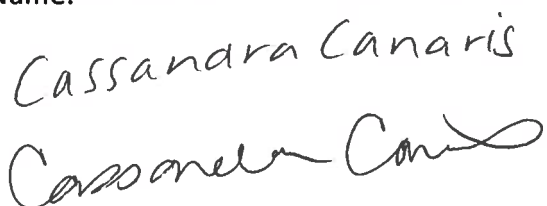 Name:
Cassandra Canaris
Cassandra Canaris